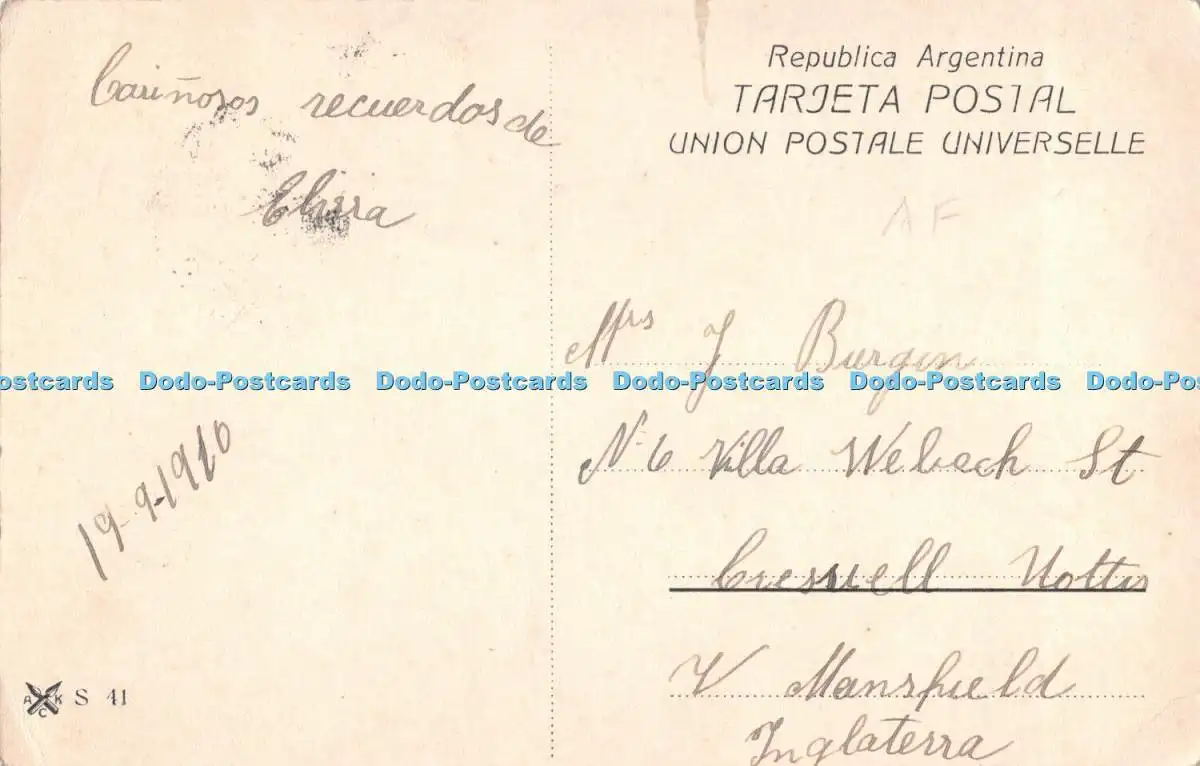 Cariñosos recuerdos de
Elvira
19-9-1910
A C K S 41
Republica Argentina
TARJETA POSTAL
UNION POSTALE UNIVERSELLE
A F
Mrs J Burgin
N-6 Villa Webech St
Creswell Notts
V Mansfield
Inglaterra
ostcards Dodo-Postcards Dodo-Postcards Dodo-Postcards Dodo-Postcards Dodo-Pos